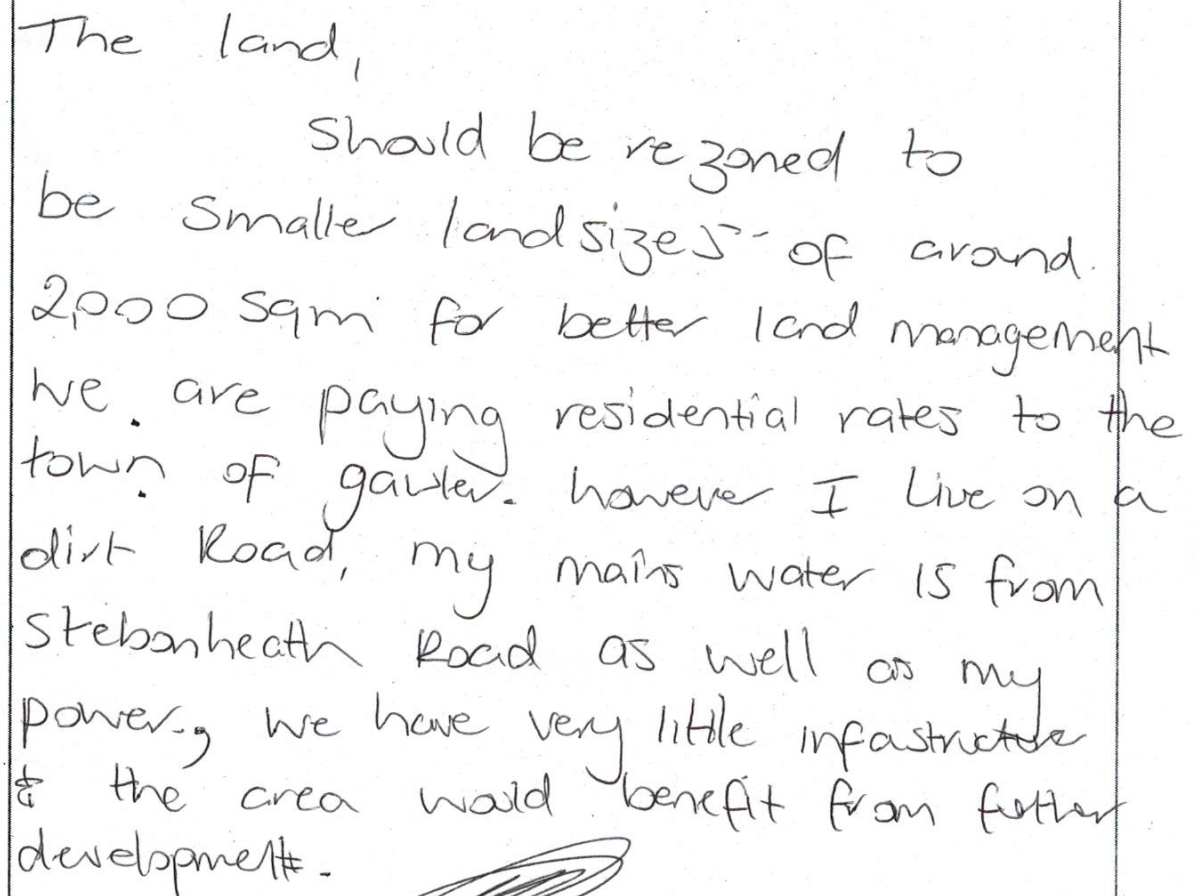 The land,
Should be rezoned to
be smaller landsizes of around.
2,000 sqm for better land management
we are paying residential rates to the
town of gawler. however I Live on a
dirt Road, my mains water is from
Stebonheath Road as well as my
power, we have very little infastructure
& the area would benefit from futher
development.